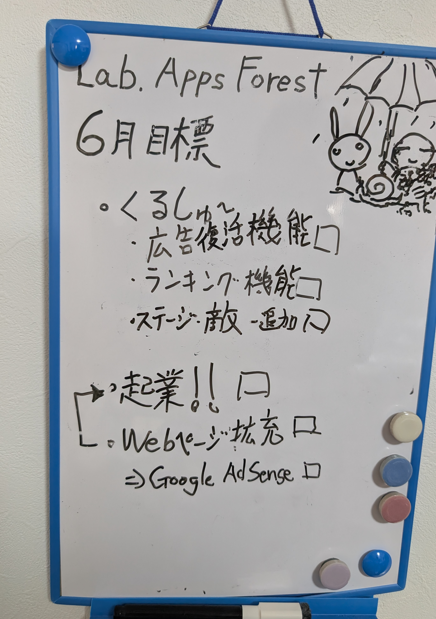 Lab. Apps Forest
6月目標
・くるしゅ〜
・広告復活機能□
・ランキング機能□
・ステージ・敵 追加□
・起業!! □
・Webページ拡充 □
⇒Google AdSense □